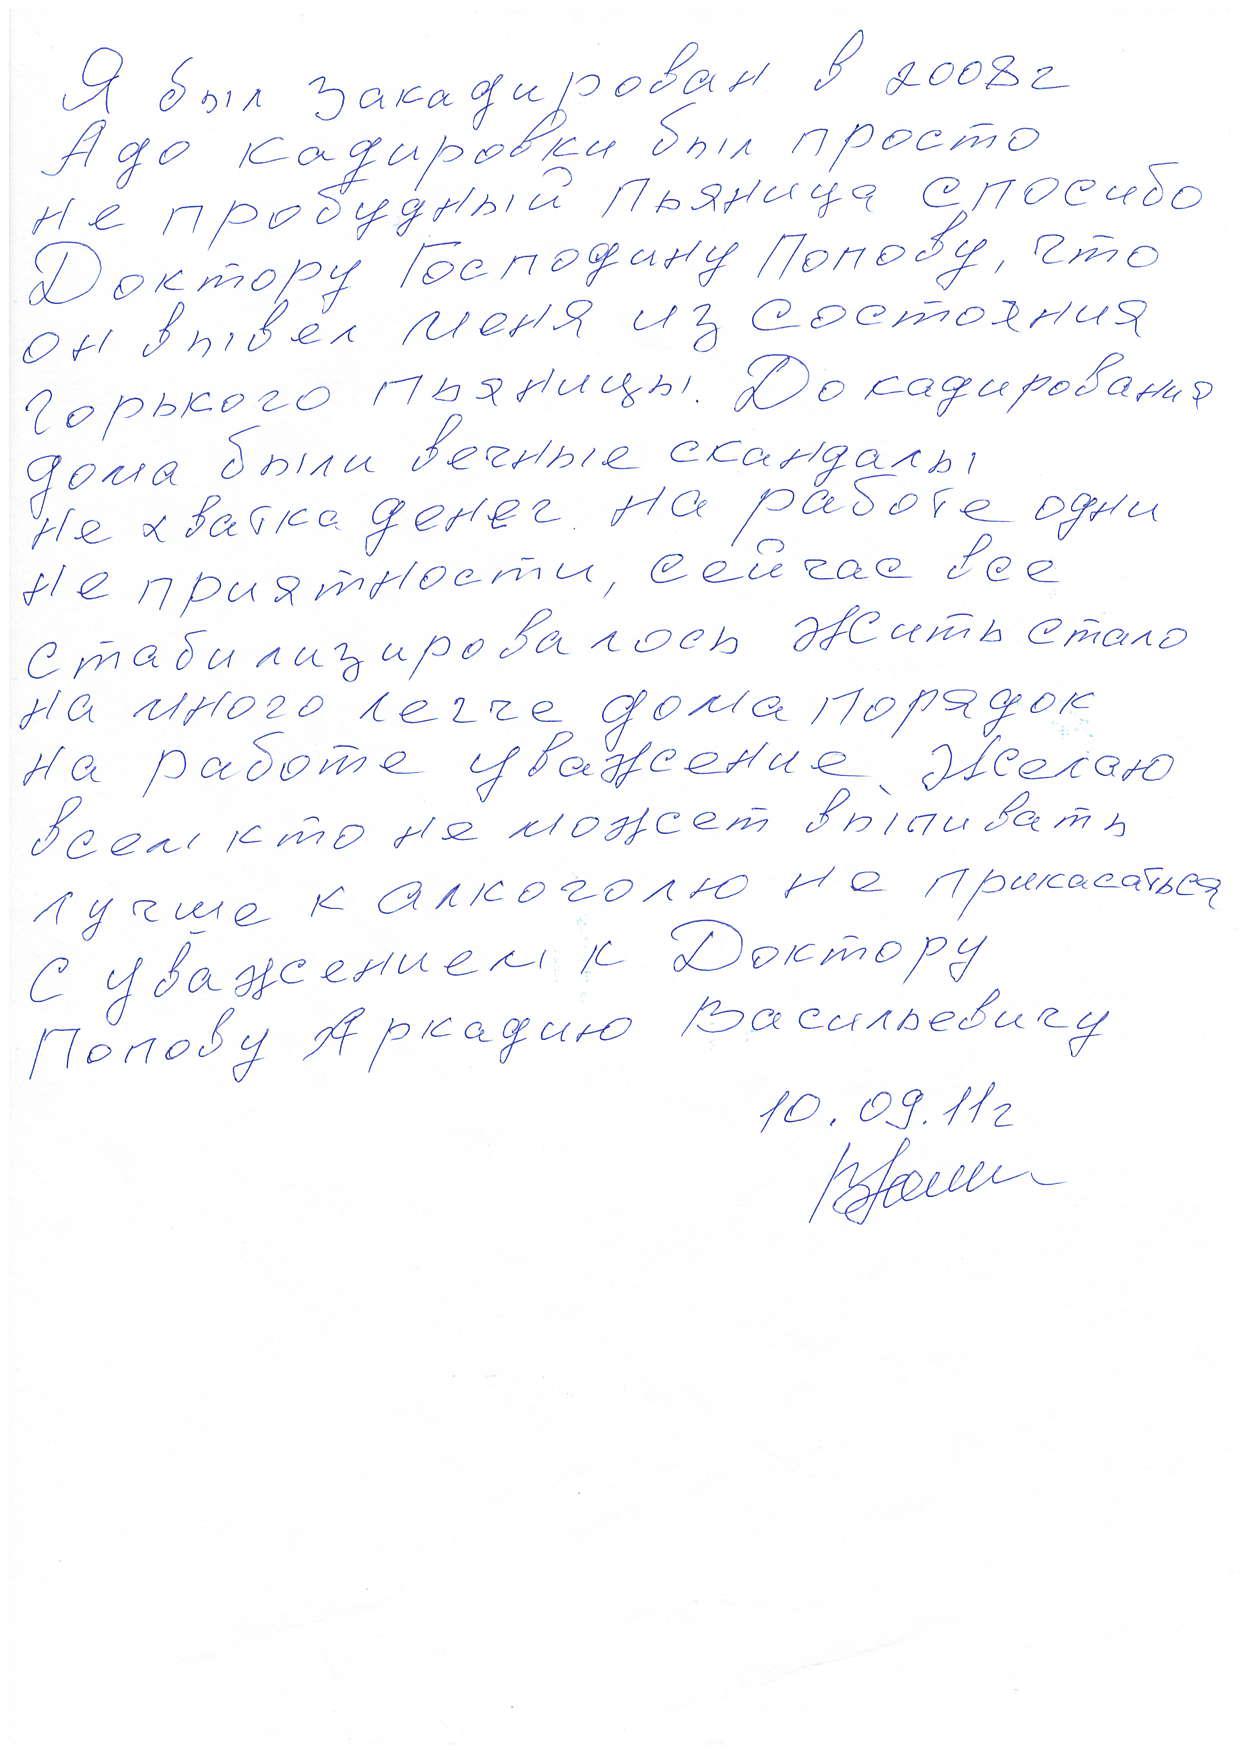 Я был закадирован в 2008г
А до кадировки был просто
не пробудный пьяница спосибо
Доктору Господину Попову, что
он вывел меня из состояния
горького пьяницы. До кадирования
дома были вечные скандалы
не хватка денег. на работе одни
не приятности, сейчас все
стабилизировалось Жить стало
на много легче дома порядок
на работе уважение. Желаю
всем кто не может выпивать
лучше к алкоголю не прикасаться
С уважением к Доктору
Попову Аркадию Васильевичу
10.09.11г